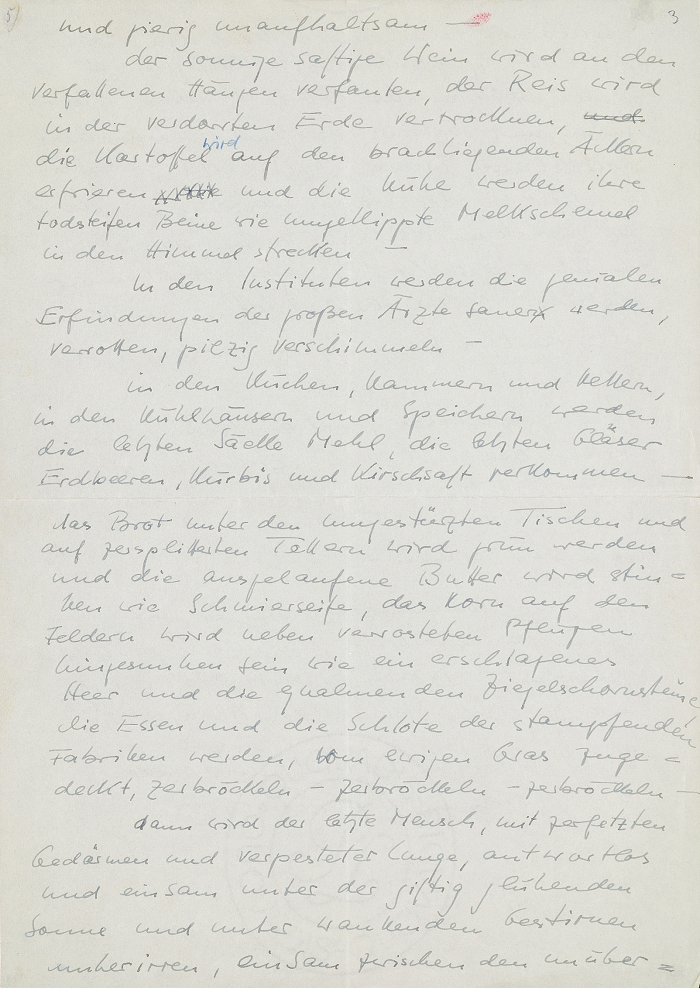 5) 3
und gierig unaufhaltsam —
der sonnige saftige Wein wird an den
verfallenen Hängen verfaulen, der Reis wird
in der verdorrten Erde vertrocknen, und
die Kartoffel wird auf den brachliegenden Äckern
erfrieren und die Kühe werden ihre
todsteifen Beine wie umgekippte Melkschemel
in den Himmel strecken —
In den Instituten werden die genialen
Erfindungen der großen Ärzte sauer werden,
verrotten, pilzig verschimmeln —
in den Küchen, Kammern und Kellern,
in den Kühlhäusern und Speichern werden
die letzten Säcke Mehl, die letzten Gläser
Erdbeeren, Kürbis und Kirschsaft verkommen —
das Brot unter den umgestürzten Tischen und
auf zersplitterten Tellern wird grün werden
und die ausgelaufene Butter wird stin=
ken wie Schmierseife, das Korn auf den
Feldern wird neben verrosteten Pflügen
hingesunken sein wie ein erschlagenes
Heer und die qualmenden Ziegelschornsteine
die Essen und die Schlote der stampfenden
Fabriken werden, vom ewigen Gras zuge=
deckt, zerbröckeln – zerbröckeln – zerbröckeln —
dann wird der letzte Mensch, mit zerfetzten
Gedärmen und verpesteter Lunge, antwortlos
und einsam unter der giftig glühenden
Sonne und unter wankenden Gestirnen
umherirren, einsam zwischen den unüber=